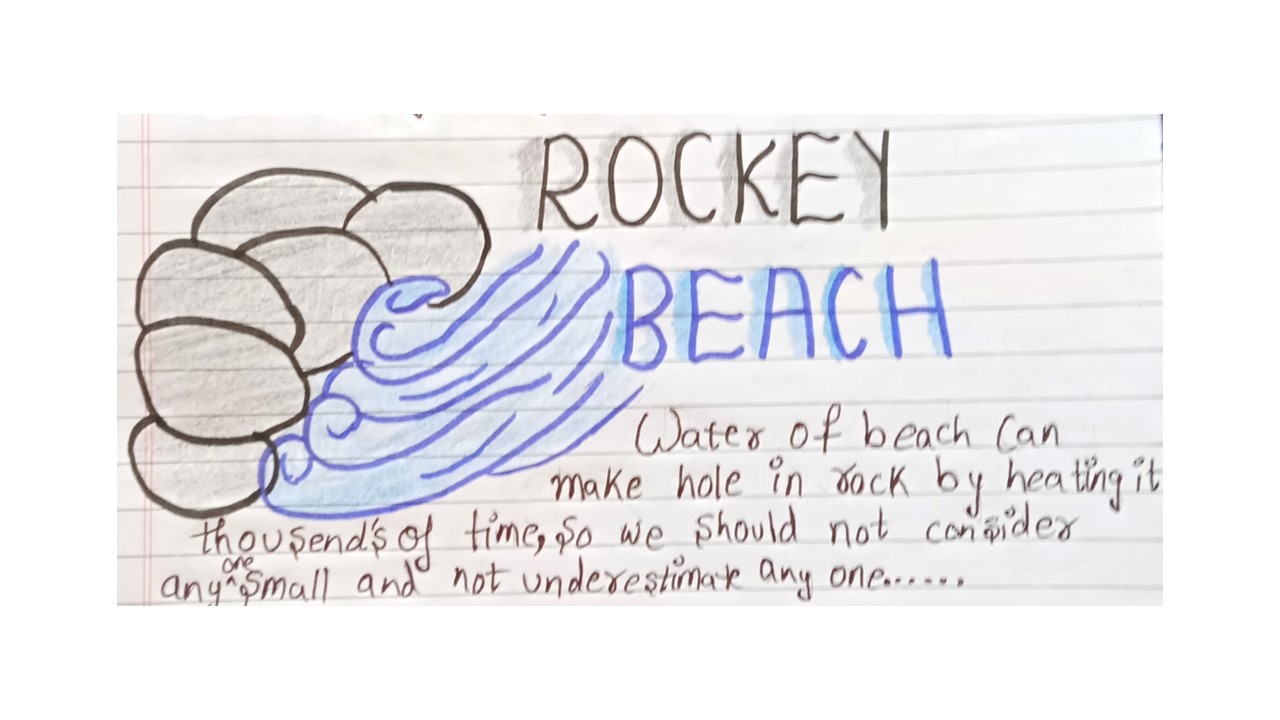 ROCKEY
BEACH
Water of beach Can
make hole in rock by heating it
thousend's of time, so we should not consider
any one small and not underestimate any one......